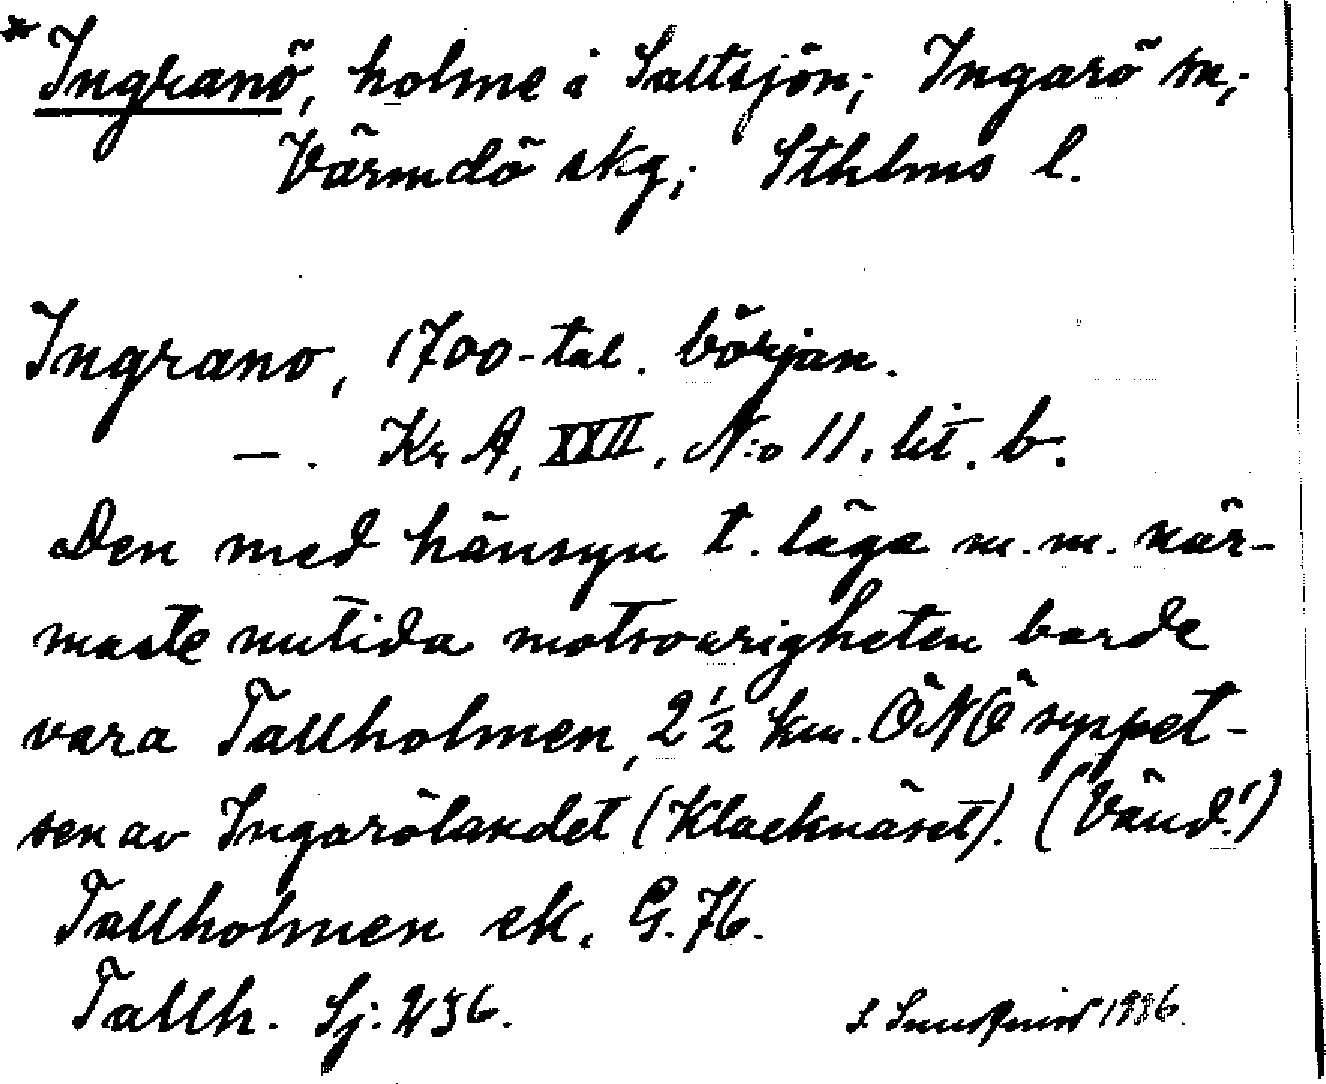 * Ingranö, holme i Saltsjön; Ingarö sn;
Värmdö skg; Sthlms l.
Ingrano, 1700-tal. början.
—. Kr A, XXII. N:o 11. lit. b.
Den med hänsyn t. läge m.m. när-
maste nutida motsvarigheten borde
vara Tallholmen, 2 ½ km. ÖNÖ syppet-
sen av Ingarölandet (Klacknäset). (Vänd!)
Tallholmen ek. G. 76.
Tallh. Sj: 236.
1936.